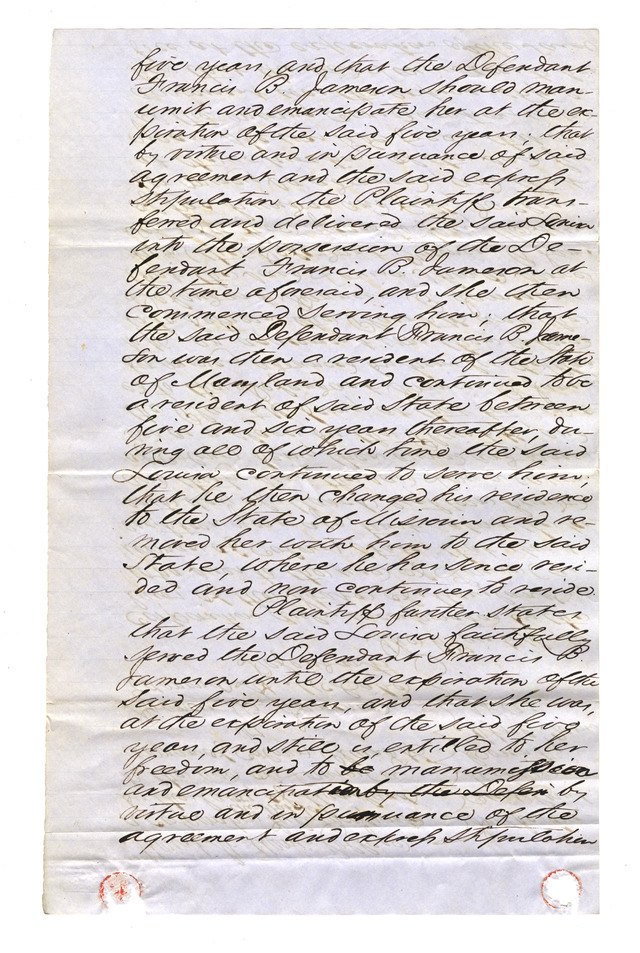 five years, and that the Defendant
Francis B. Jameson should man-
umit and emancipate her at the ex-
piration of the said five years; that
by virtue and in pursuance of said
agreement and the said express
stipulation the Plaintiff trans-
ferred and delivered the said Louisa
into the possession of the De-
fendant Francis B. Jameson at
the time aforesaid, and she then
commenced serving him; that
the said Defendant Francis B. Jame-
son was then a resident of the State
of Maryland and continued to be
a resident of said State between
five and six years thereafter, du-
ring all of which time the said
Louisa continued to serve him;
that he then changed his residence
to the State of Missouri and re-
moved her with him to the said
State, where he has since resi-
ded and now continues to reside
Plaintiff further states
that the said Louisa faithfully
served the Defendant Francis B.
Jameson until the expiration of the
said five years, and that she was,
at the expiration of the said five
years, and still is, entitled to her
freedom, and to be manumission
and emancipation by the Defen by
virtue and in pursuance of the
agreement and express stipulation